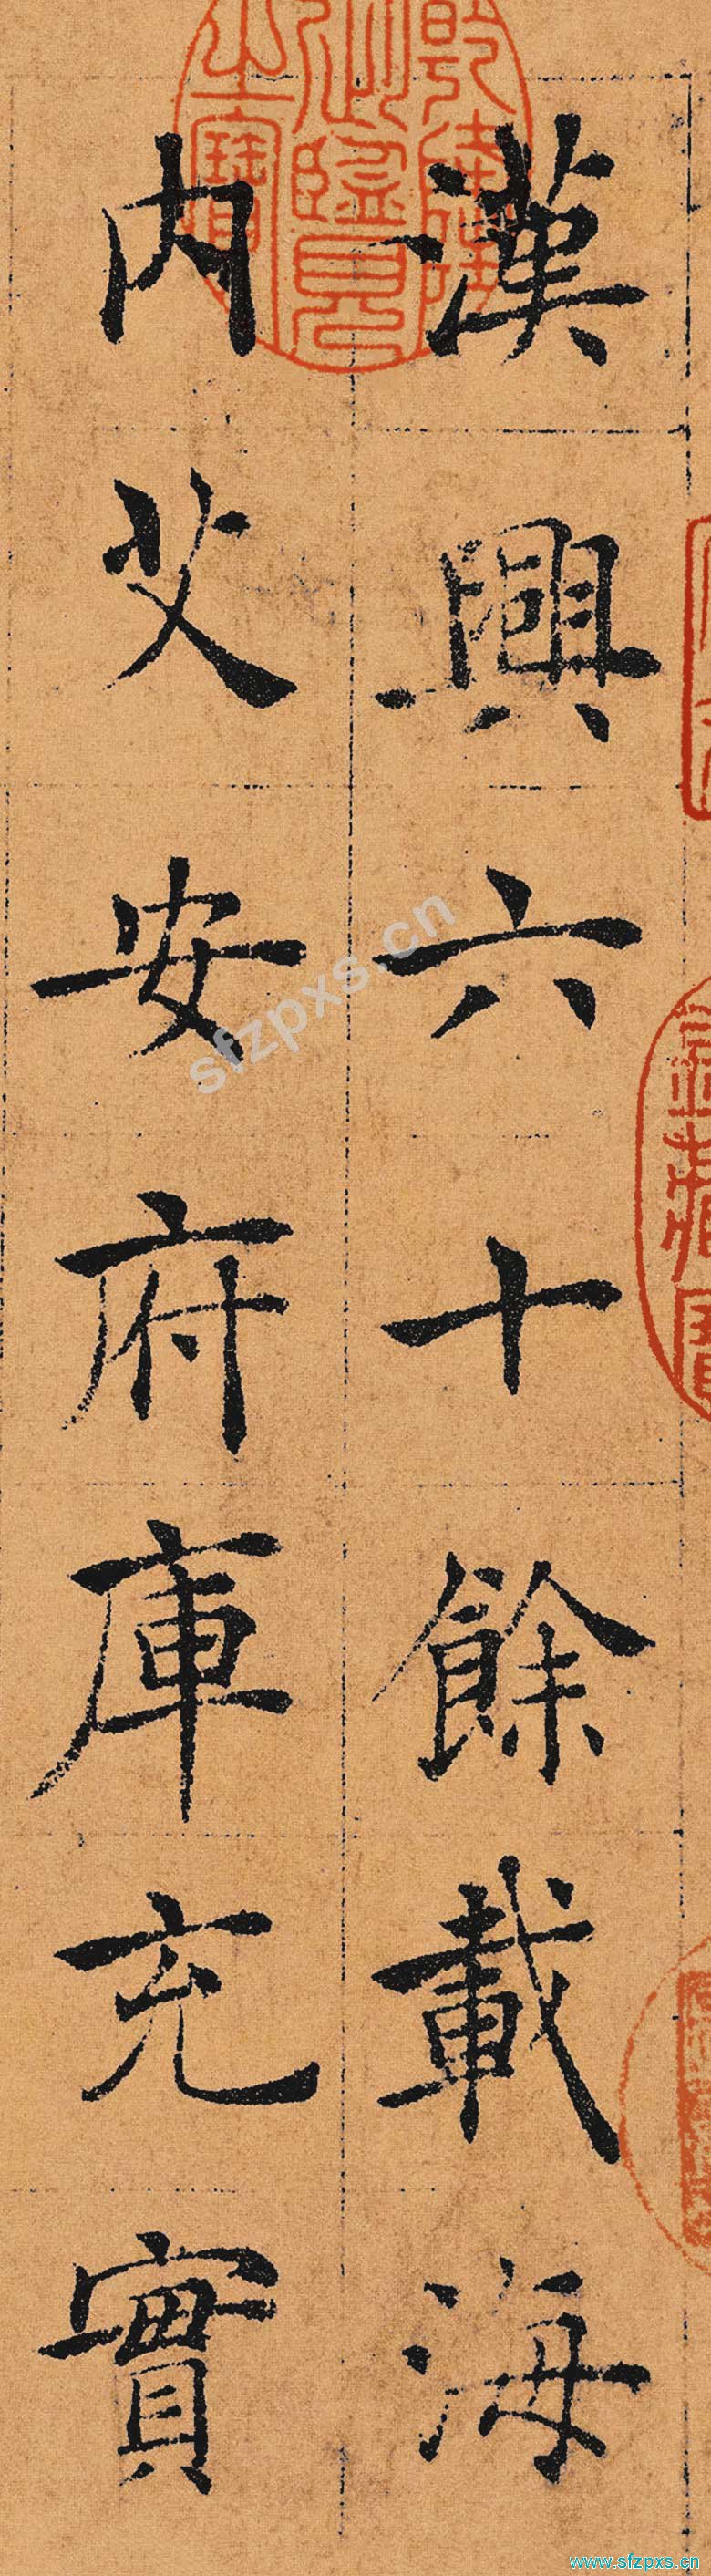 漢興六十餘載海
内艾安府庫充實
乾隆御覽之寶
sfzpxs.cn
www.sfzpxs.cn